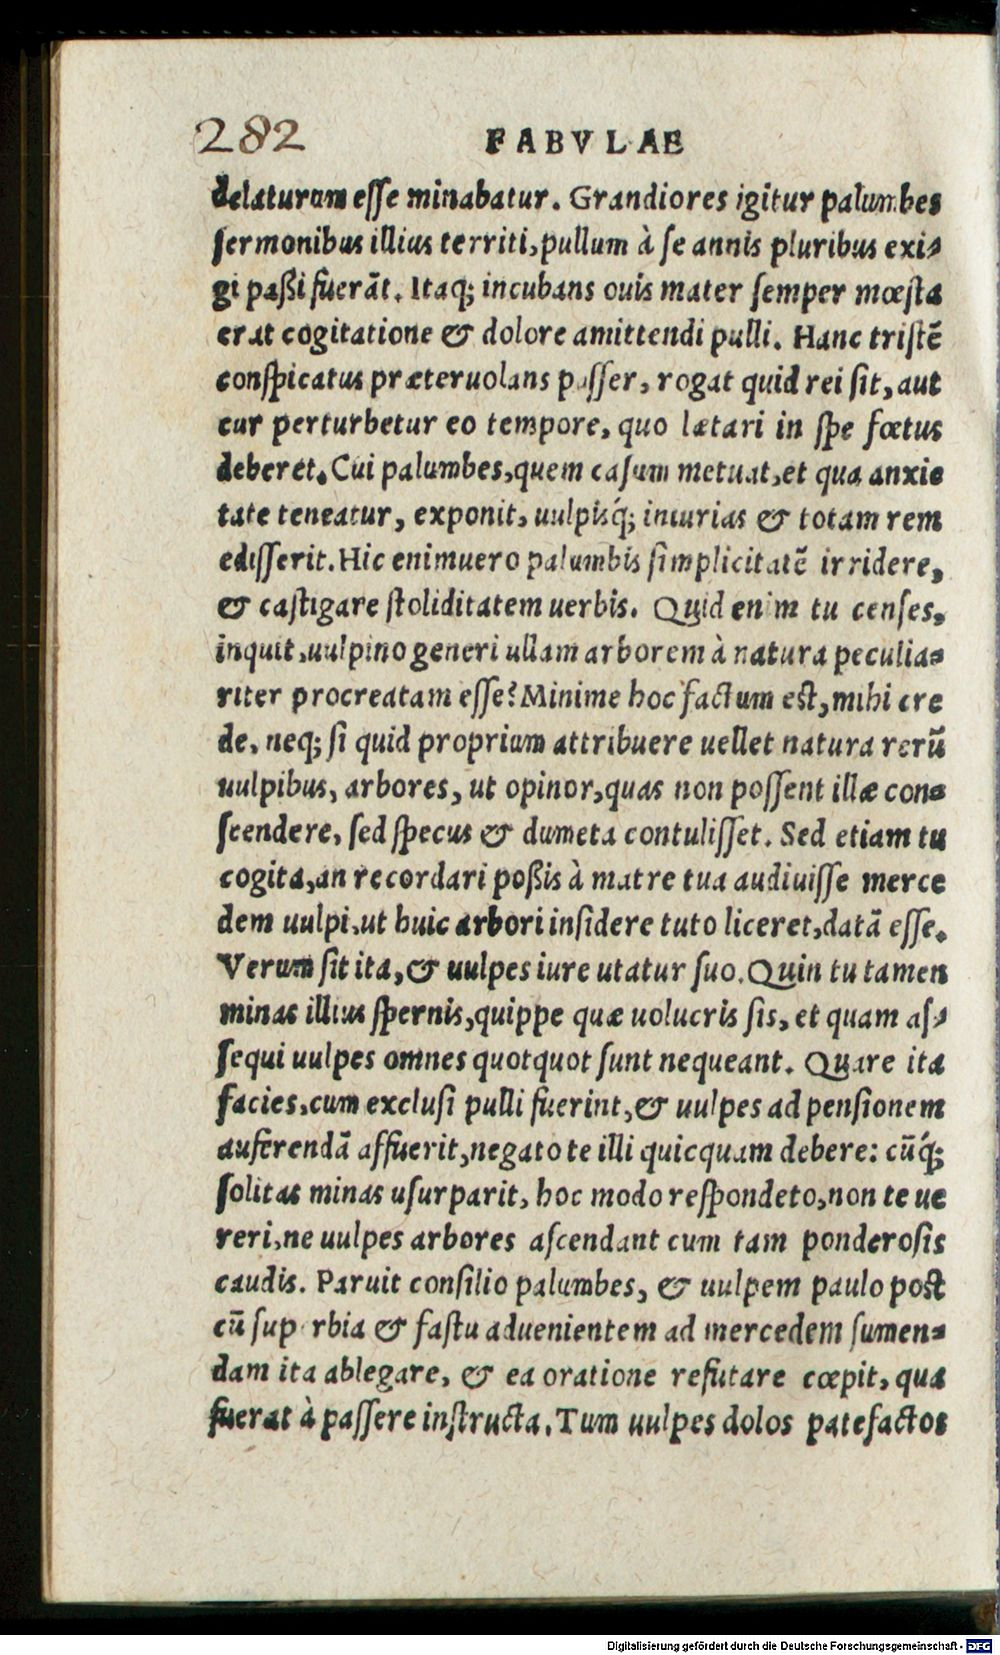 282 FABVLAE
delaturum eſſe minabatur. Grandiores igitur palumbes
ſermonibus illius territi, pullum à ſe annis pluribus exi-
gi paßi fuerāt. Itaq; incubans ouis mater ſemper mœſta
erat cogitatione & dolore amittendi pulli. Hanc triſtē
conſpicatus præteruolans paſſer, rogat quid rei ſit, aut
cur perturbetur eo tempore, quo lætari in ſpe fœtus
deberet. Cui palumbes, quem caſum metuat, et qua anxie
tate teneatur, exponit, uulpisq́; iniurias & totam rem
ediſſerit. Hic enimuero palumbis ſimplicitatē irridere,
& caſtigare ſtoliditatem uerbis. Quid enim tu cenſes,
inquit, uulpino generi ullam arborem à natura peculia-
riter procreatam eſſe? Minime hoc factum eſt, mihi cre
de, neq; ſi quid proprium attribuere uellet natura rerū
uulpibus, arbores, ut opinor, quas non poſſent illæ con-
ſcendere, ſed ſpecus & dumeta contuliſſet. Sed etiam tu
cogita, an recordari poßis à matre tua audiuiſſe merce
dem uulpi, ut huic arbori inſidere tuto liceret, datā eſſe.
Verum ſit ita, & uulpes iure utatur ſuo. Quin tu tamen
minas illius ſpernis, quippe quæ uolucris ſis, et quam aſ-
ſequi uulpes omnes quotquot ſunt nequeant. Quare ita
facies, cum excluſi pulli fuerint, & uulpes ad penſionem
auferendā affuerit, negato te illi quicquam debere: cūq́;
ſolitas minas uſurparit, hoc modo reſpondeto, non te ue
reri, ne uulpes arbores aſcendant cum tam ponderoſis
caudis. Paruit conſilio palumbes, & uulpem paulo poſt
cū ſup rbia & faſtu aduenientem ad mercedem ſumen-
dam ita ablegare, & ea oratione refutare cœpit, qua
fuerat à paſſere inſtructa. Tum uulpes dolos patefactos
Digitalisierung gefördert durch die Deutsche Forschungsgemeinschaft - DFG